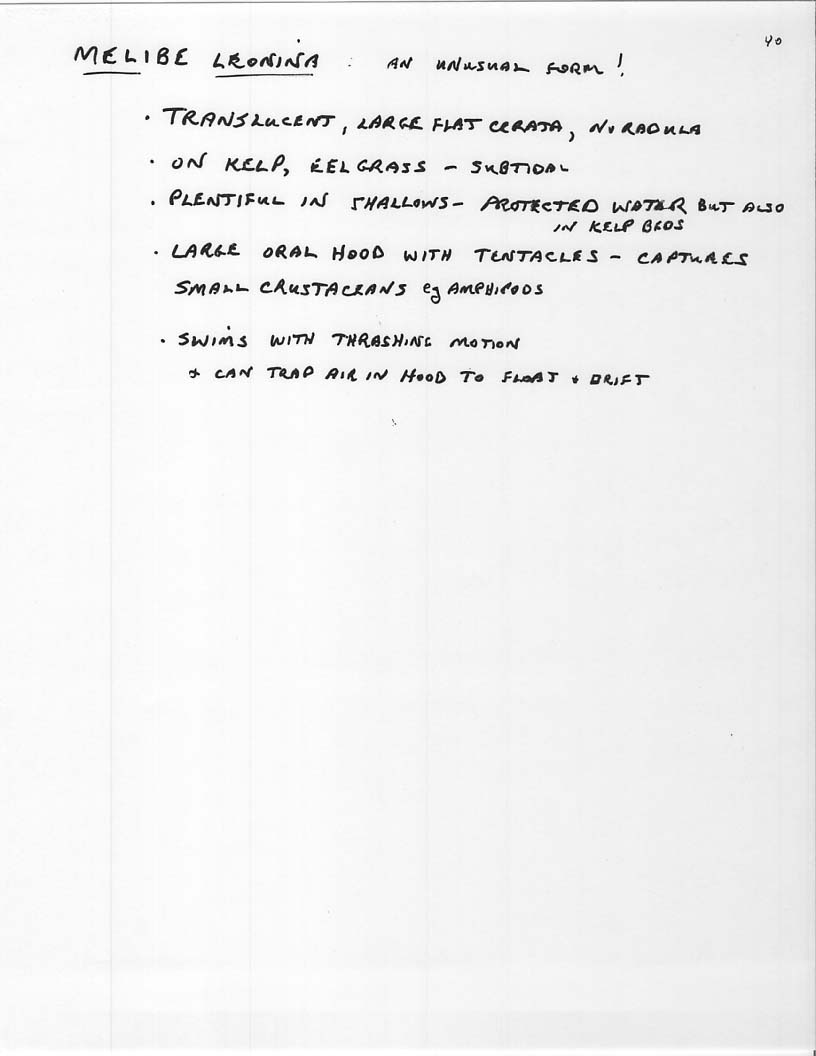 40
MELIBE LEONINA : AN UNUSUAL FORM!
· TRANSLUCENT, LARGE FLAT CERATA, NO RADULA
· ON KELP, EELGRASS - SUBTIDAL
· PLENTIFUL IN SHALLOWS - PROTECTED WATER BUT ALSO
IN KELP BEDS
· LARGE ORAL HOOD WITH TENTACLES - CAPTURES
SMALL CRUSTACEANS eg AMPHIPODS
· SWIMS WITH THRASHING MOTION
+ CAN TRAP AIR IN HOOD TO FLOAT + DRIFT